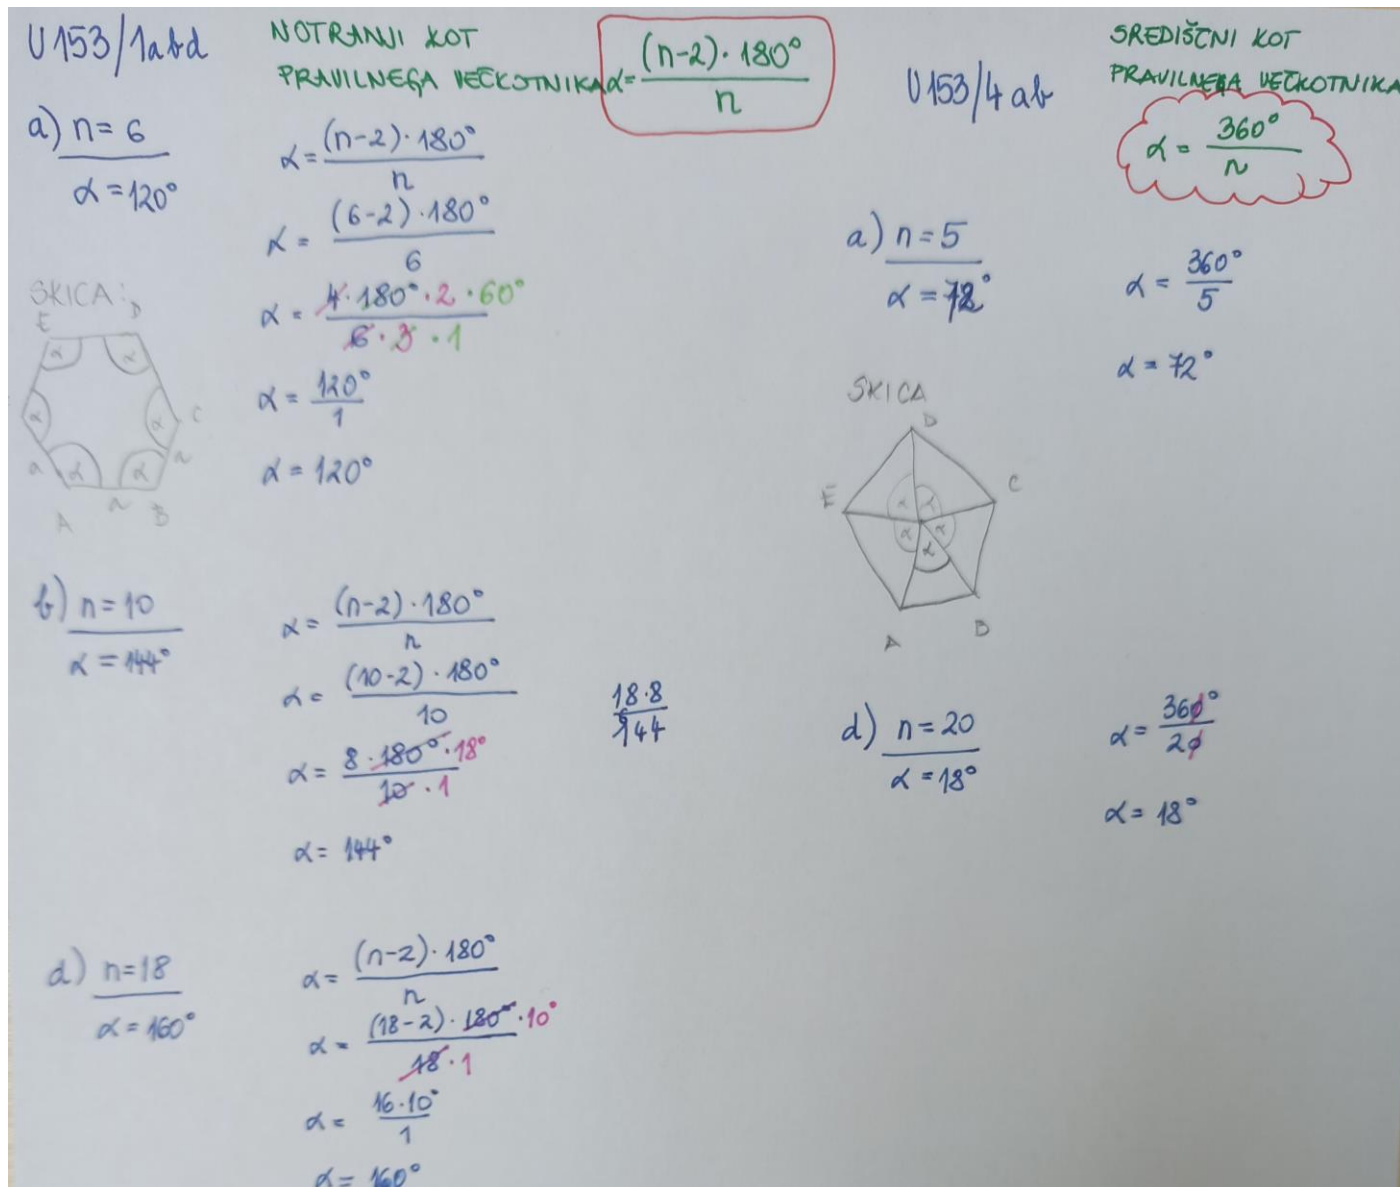 U153/1abd
NOTRANJI KOT
PRAVILNEGA VEČKOTNIKA α = (n-2)·180° / n
a) n = 6
α = 120°
α = (n-2)·180° / n
α = (6-2)·180° / 6
α = 4·180°·2·60° / 6·3·1
α = 120° / 1
α = 120°
SKICA:
E D
α α
α α C
a α α a
A a B
b) n = 10
α = 144°
α = (n-2)·180° / n
α = (10-2)·180° / 10
α = 8·180°·18° / 10·1
α = 144°
18·8
144
d) n = 18
α = 160°
α = (n-2)·180° / n
α = (18-2)·180°·10° / 18·1
α = 16·10° / 1
α = 160°
U153/4ab
SREDIŠČNI KOT
PRAVILNEGA VEČKOTNIKA
α = 360° / n
a) n = 5
α = 72°
α = 360° / 5
α = 72°
SKICA
D
E C
α α
α α
α
A B
d) n = 20
α = 18°
α = 360° / 20
α = 18°